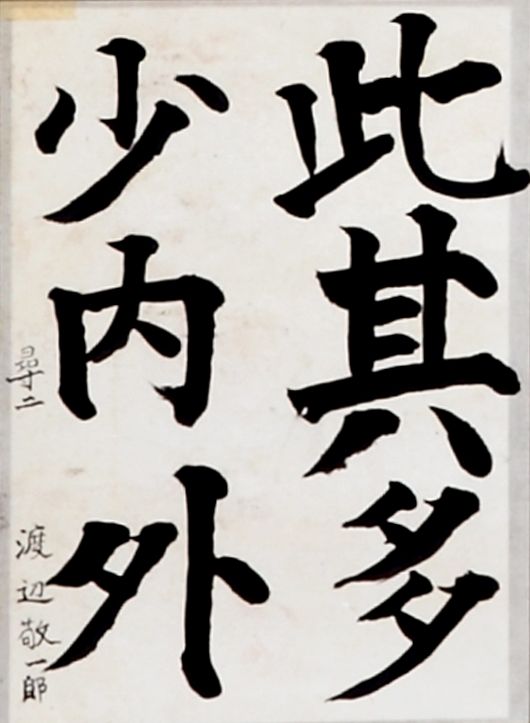 此其多
少内外
尋二 渡辺敬一郎